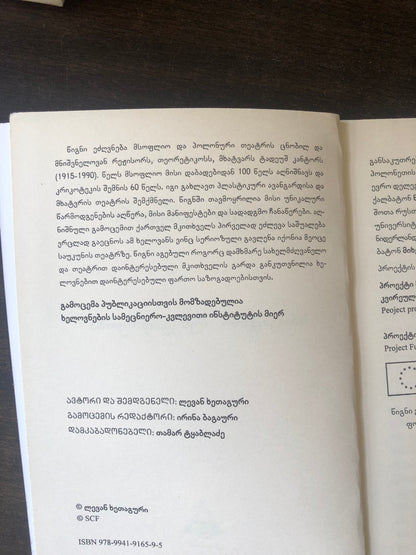 წიგნი ეძღვნება მსოფლიო და პოლონური თეატრის ცნობილ და
მნიშვნელოვან რეჟისორს, თეორეტიკოსს, მხატვარს ტადეუშ კანტორს
(1915-1990). წელს მსოფლიო მისი დაბადებიდან 100 წელს აღნიშნავს და
კრიკოტეკის შემნის 60 წელს. იგი გახლავთ პლასტიკური ავანგარდისა და
მხატვრის თეატრის შემქმნელი. წიგნში თავმოყრილია მისი უნიკალური
წარმოდგენების აღწერა, მისი მანიფესტები და სადადგმო ჩანაწერები. აღ-
ნიშნული გამოცემით ქართველ მკითხველს პირველად ეძლევა საშუალება
ვრცლად გაეცნოს ამ ხელოვანს ვინც სერიოზული გავლენა იქონია მეოცე
საუკუნის თეატრზე. წიგნი აგებულ როგორც დამხმარე სახელმძღვანელო
და თეატრით დაინტერესებული მკითხველის გარდა განკუთვნილია ხე-
ლოვნებით დაინტერესებულ ფართო საზოგადოებისთვის.
გამოცემა პუბლიკაციისთვის მომზადებულია
ხელოვნების სამეცნიერო-კვლევითი ინსტიტუტის მიერ
ავტორი და შემდგენელი: ლევან ხეთაგური
გამოცემის რედაქტორი: ირინა ბაგაური
დამკაბადონებელი: თამარ ტყაბლაძე
© ლევან ხეთაგური
© SCF
ISBN 978-9941-9165-9-5
განსაკუთრე
პოლონეთის
ევრო დელეგ
ქალბატონ ნ
შოთა რუსთ
უნივერსიტ
ნიდერლანდ
ბატონ მიხე
პროექტი
პროექტი
კვირეულ
Peoject pro
პროექტი
Project Fu
წიგნი გ
ფო